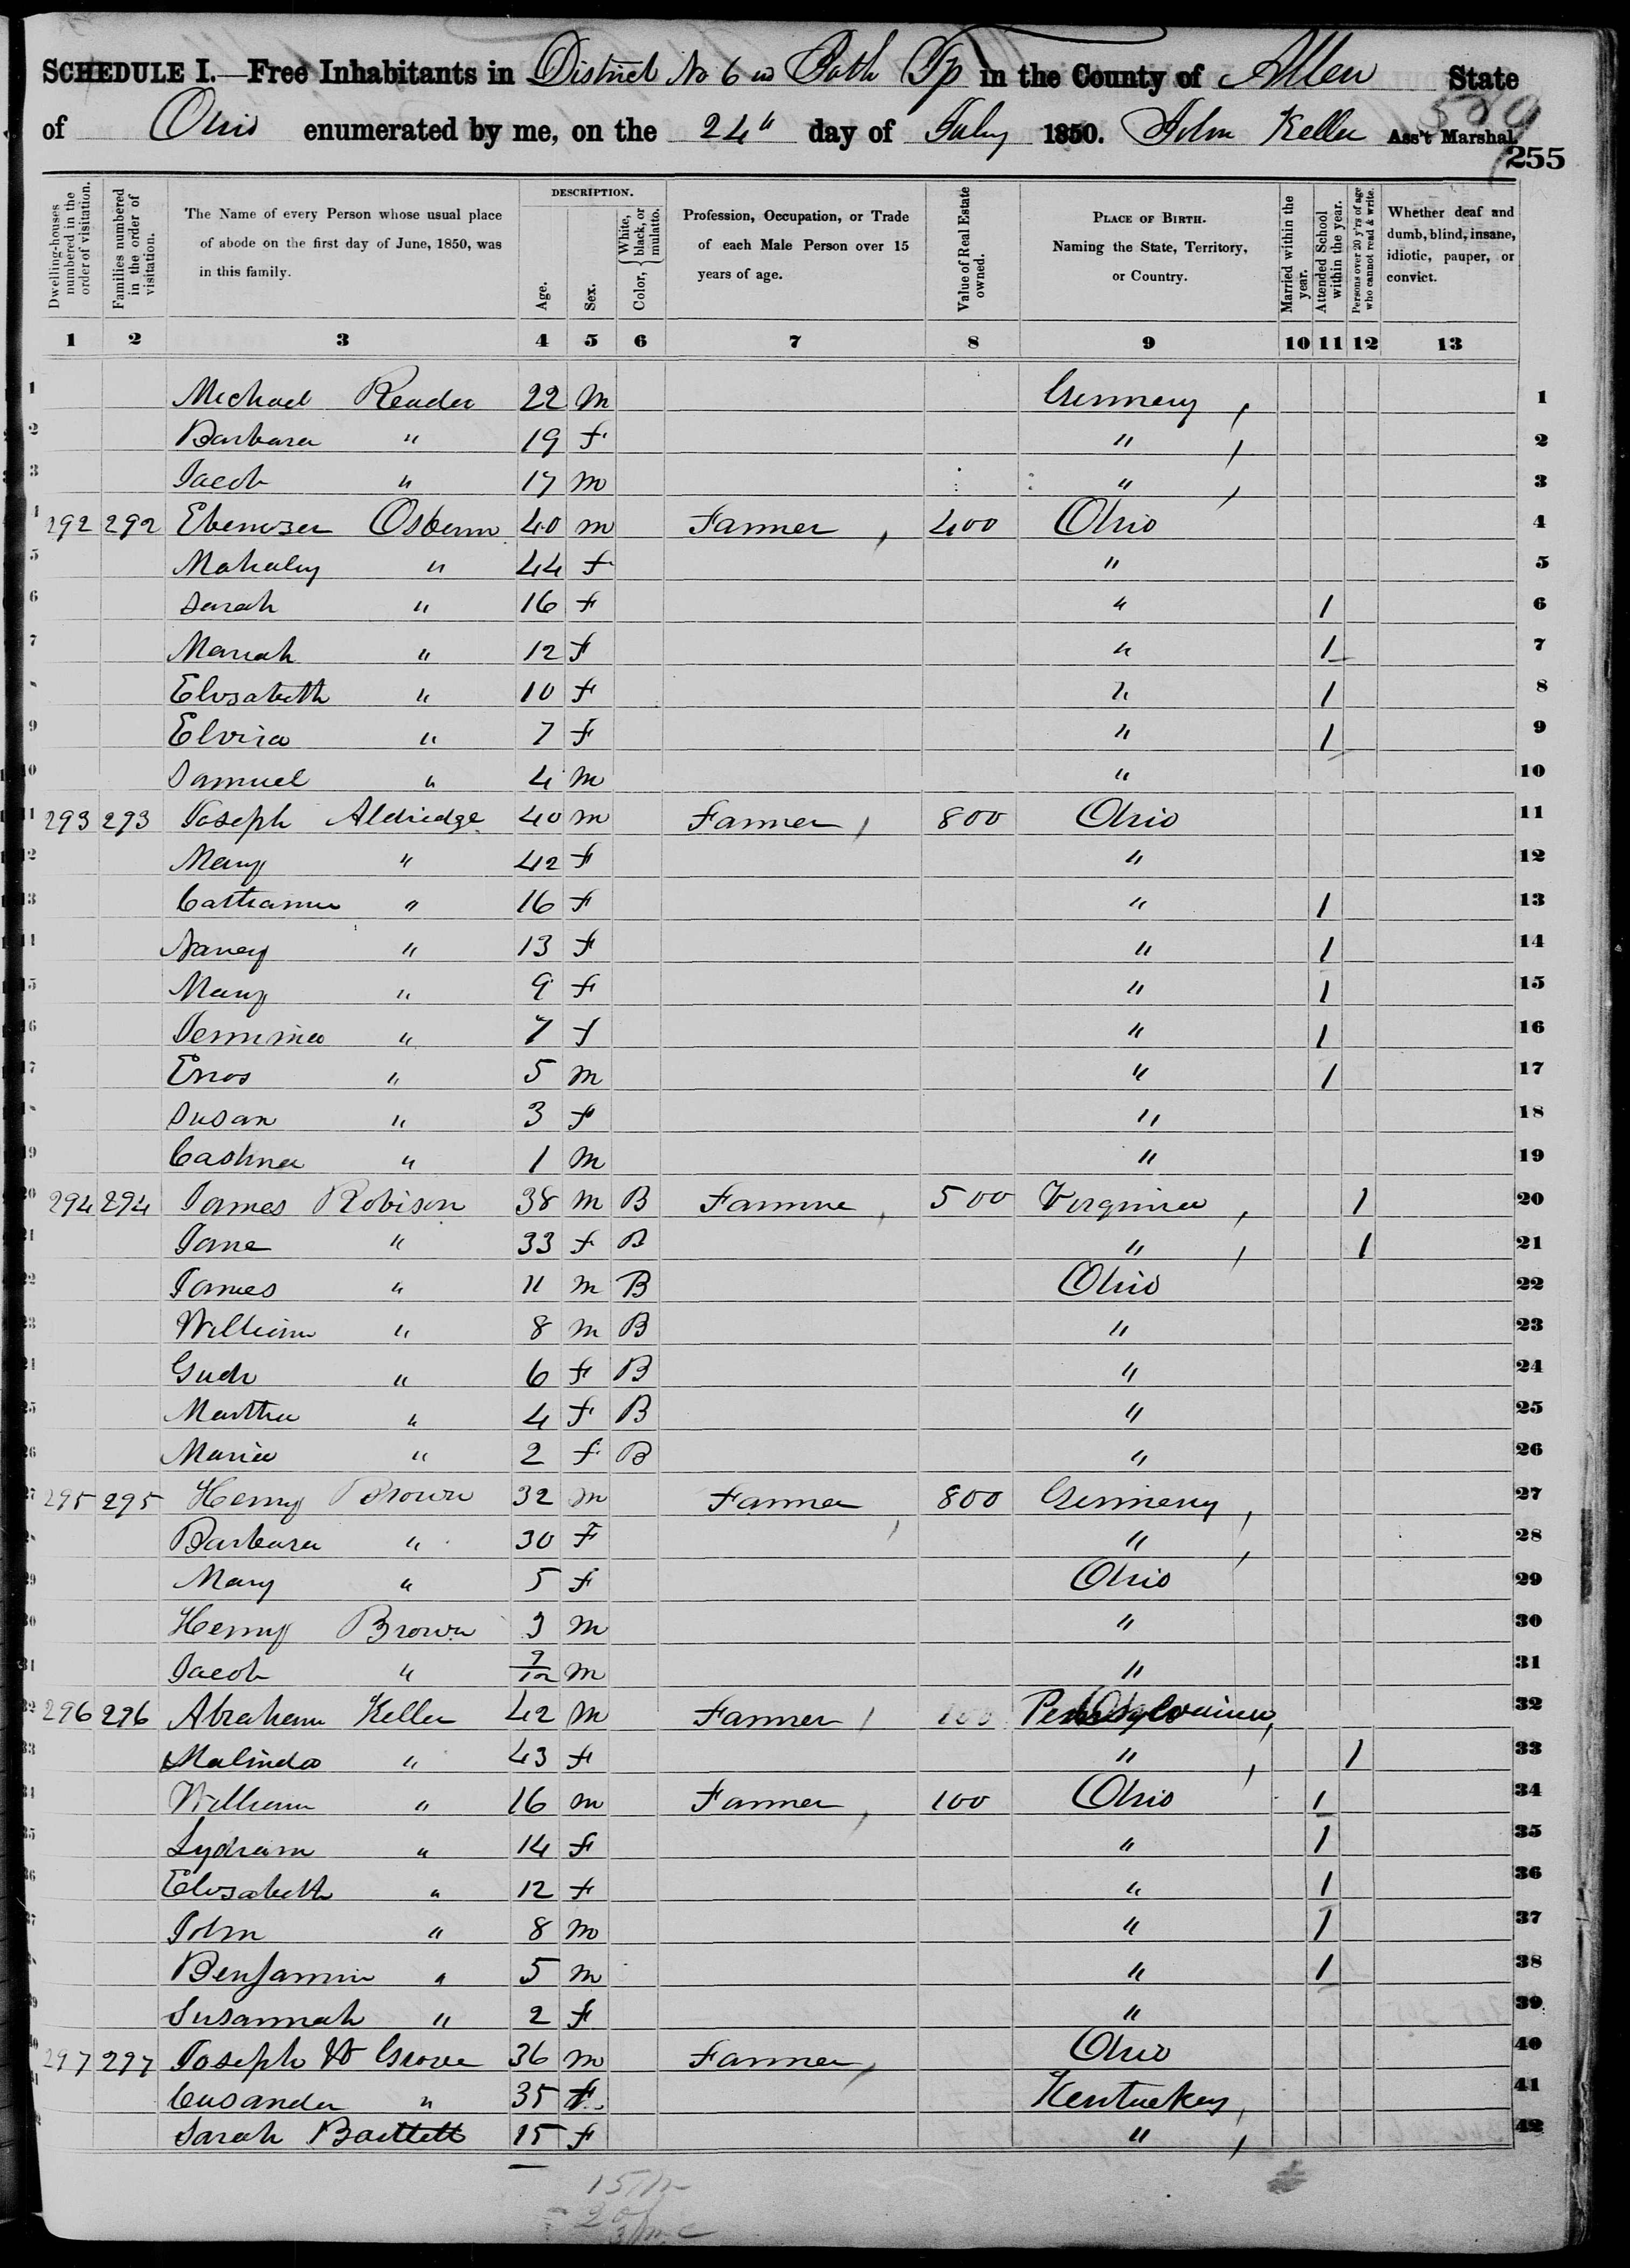 SCHEDULE I.—Free Inhabitants in District No 6 in Bath Tp in the County of Allen State
of Ohio enumerated by me, on the 24" day of July 1850. John Keller Ass't Marshal.
255
Dwelling-houses numbered in the order of visitation.
Families numbered in the order of visitation.
The Name of every Person whose usual place of abode on the first day of June, 1850, was in this family.
DESCRIPTION.
Age.
Sex.
Color, { White, black, or mulatto.
Profession, Occupation, or Trade of each Male Person over 15 years of age.
Value of Real Estate owned.
PLACE OF BIRTH. Naming the State, Territory, or Country.
Married within the year.
Attended School within the year.
Persons over 20 y'rs of age who cannot read & write.
Whether deaf and dumb, blind, insane, idiotic, pauper, or convict.
1 2 3 4 5 6 7 8 9 10 11 12 13
1 Michael Reader 22 m Germany 1
2 Barbara " 19 f " 2
3 Jacob " 17 m " 3
292 292 Ebenezer Osbern 40 m Farmer 400 Ohio 4
5 Mahaly " 44 f " 5
6 Sarah " 16 f " 1 6
7 Mariah " 12 f " 1 7
Elisabeth " 10 f " 1 8
9 Elvira " 7 f " 1 9
10 Samuel " 4 m " 10
11 293 293 Joseph Aldridge 40 m Farmer 800 Ohio 11
12 Mary " 42 f " 12
13 Catharine " 16 f " 1 13
14 Nancy " 13 f " 1 14
15 Mary " 9 f " 1 15
16 Jemima " 7 f " 1 16
17 Enos " 5 m " 1 17
Susan " 3 f " 18
19 " 1 m " 19
20 294 294 James Robison 38 m B Farmer 500 Virginia 1 20
21 Jane " 33 f B " 1 21
22 James " 11 m B Ohio 22
23 William " 8 m B " 23
24 " 6 f B " 24
25 Martha " 4 f B " 25
26 Maria " 2 f B " 26
27 295 295 Henry Brown 32 m Farmer 800 Germany 27
Barbara " 30 F " 28
29 Mary " 5 f Ohio 29
30 Henry Brown 3 m " 30
31 Jacob " m " 31
32 296 296 Abraham Keller 42 m Farmer 100 Pennsylvania 32
33 Malinda " 43 f " 1 33
34 William " 16 m Farmer 100 Ohio 1 34
35 Lydiann " 14 f " 1 35
36 Elisabeth " 12 f " 1 36
37 John " 8 m " 1 37
Benjamin " 5 m " 1 38
39 Susannah " 2 f " 39
40 297 297 Joseph W Grove 36 m Farmer Ohio 40
41 Cusander " 35 F Kentuckey 41
Sarah Bartlett 15 f " 42